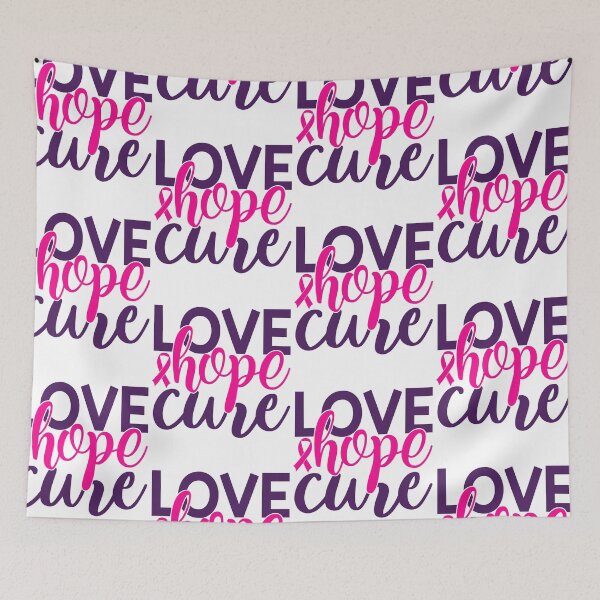 LOVE
hope
cure
LOVE
hope
cure
LOVE
hope
cure
cure
LOVE
hope
cure
LOVE
hope
cure
LOVE
hope
LOVE
hope
cure
LOVE
hope
cure
LOVE
hope
cure
cure
LOVE
hope
cure
LOVE
hope
cure
LOVE
hope